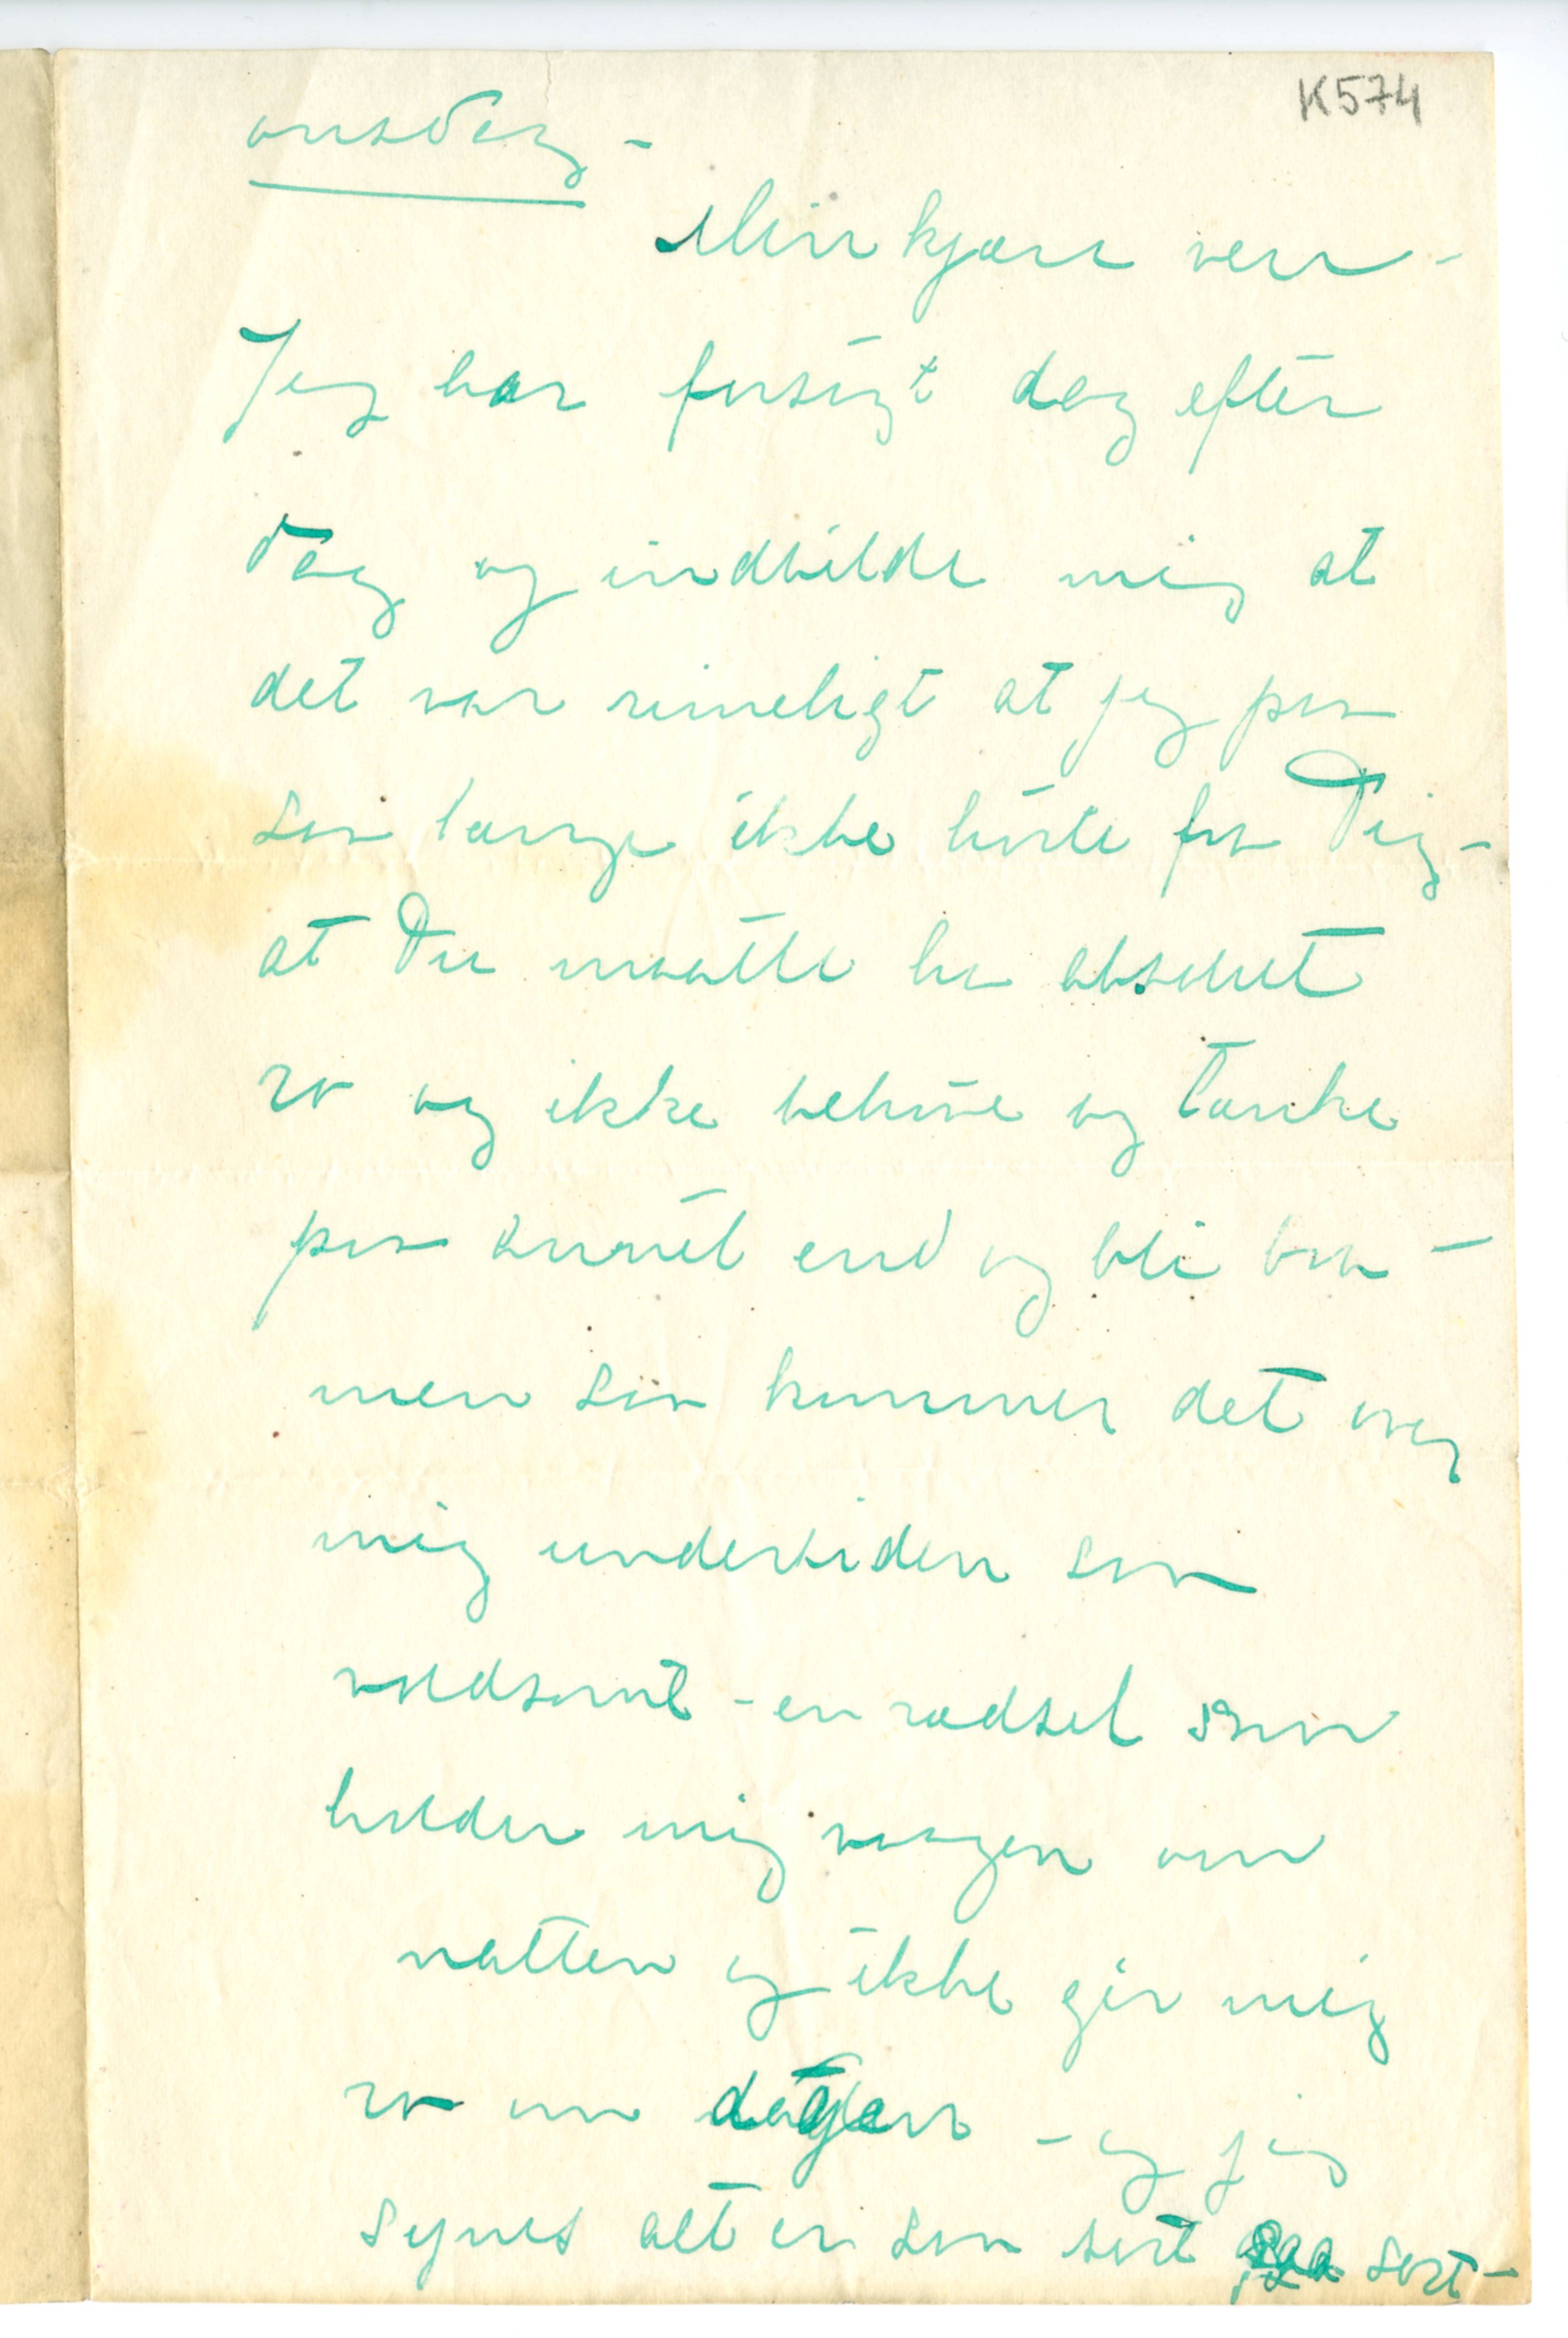 K574
onsdag -
Min kjære ven -
Jeg har forsøgt dag efter
dag og indbilde mig at
det var rimeligt at jeg paa
saa længe ikke hørte fra Dig -
at Du maatte ha absolut
ro og ikke behøve og tænke
paa annet end og bli bra -
men saa kommer det over
mig undertiden saa
voldsomt - en rædsel som
holder mig vaagen om
natten og ikke gir mig
ro om dagen - og jeg
synes alt er saa sort saa sort -